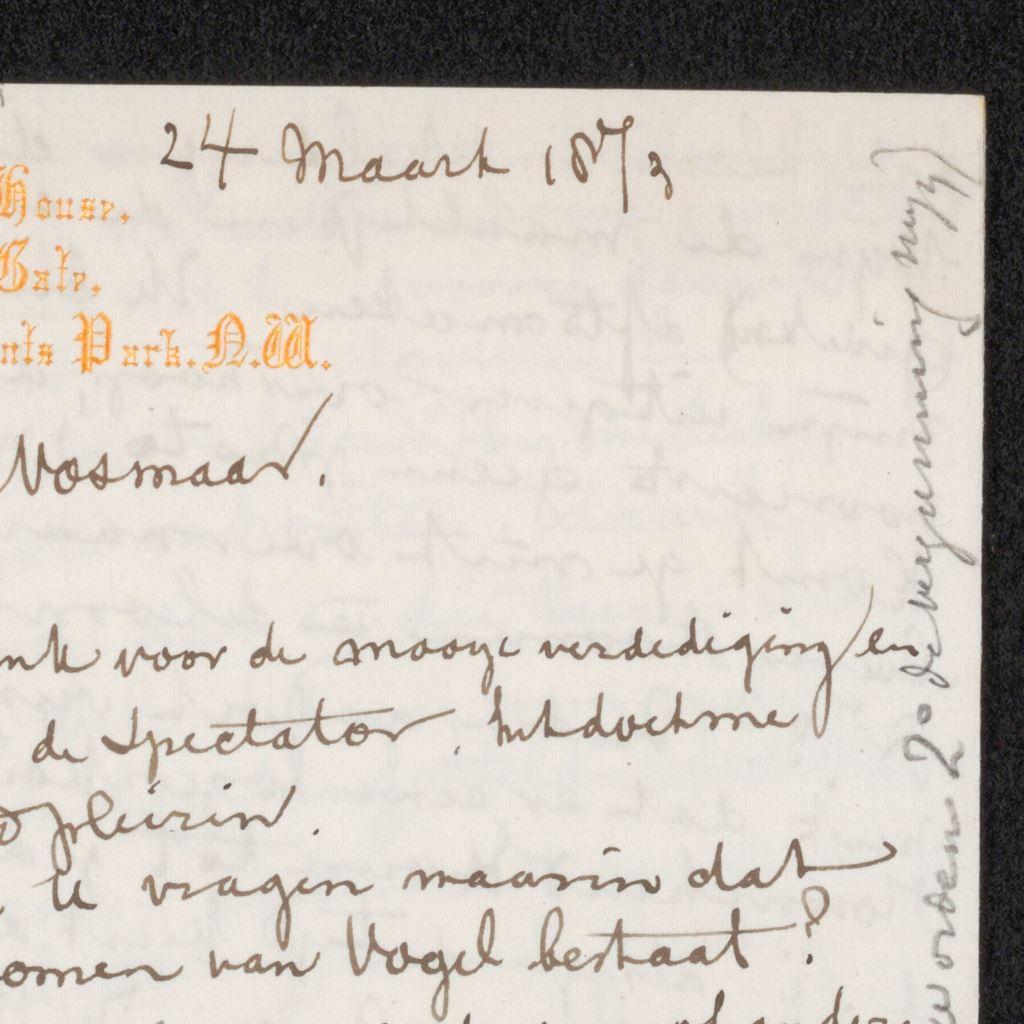 24 Maart 1873
House,
Gate,
nts Park. N.W.
Vosmaar.
nk voor de mooye verdediging en
de Spectator. Het doet me
pleizin.
U vragen waarin dat
omen van Vogel bestaat?
worden 2° de vergunning my